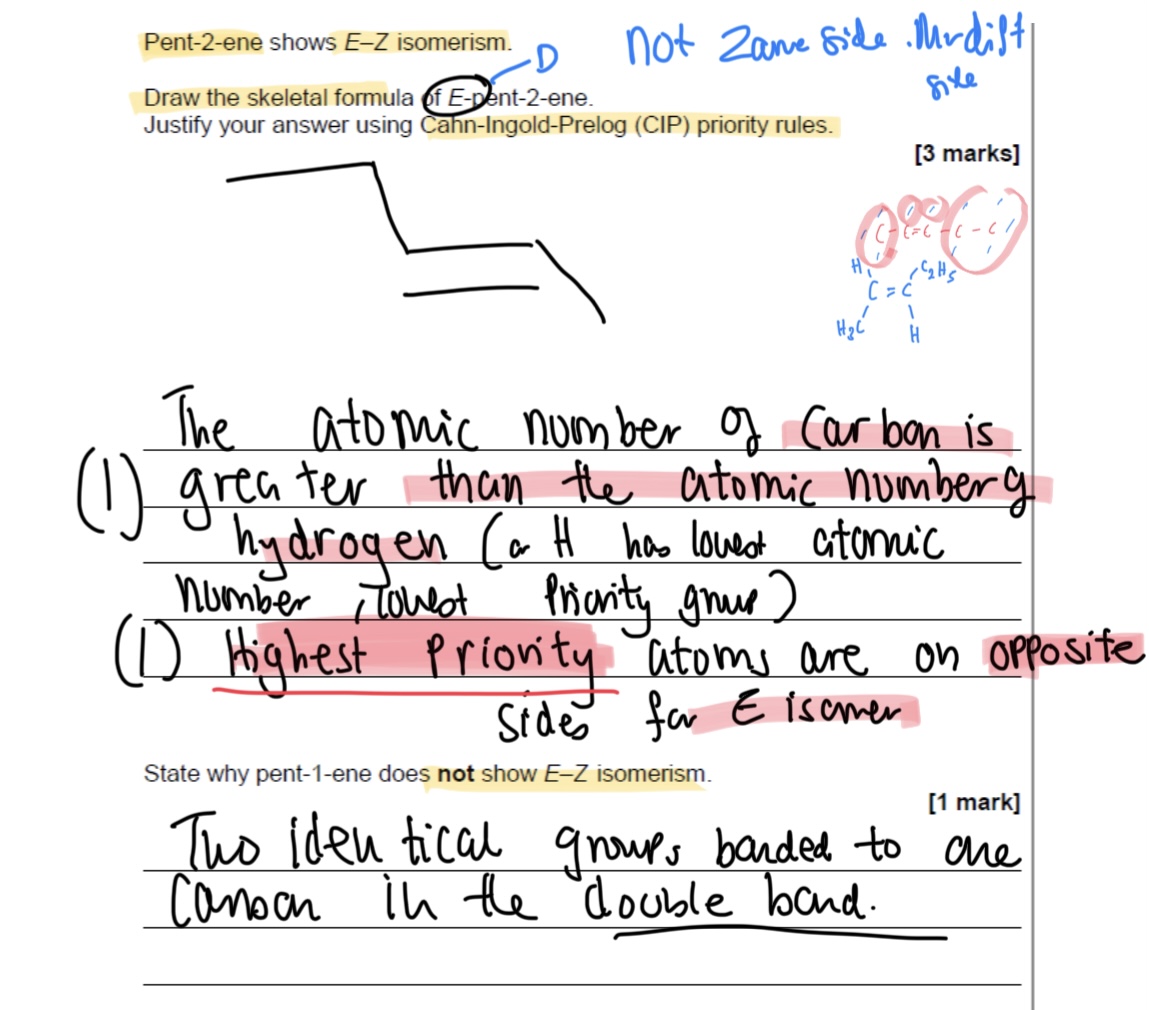 Pent-2-ene shows E–Z isomerism.
not Zame side
side
D
Draw the skeletal formula of E-pent-2-ene.
Justify your answer using Cahn-Ingold-Prelog (CIP) priority rules.
[3 marks]
C - C = C - C - C
H C2H5
C = C
H3C H
The atomic number of Carbon is
(1) greater than the atomic number of
hydrogen (a H has lowest atomic
number, lowest Priority group)
(1) Highest Priority atoms are on opposite
sides for E isomer
State why pent-1-ene does not show E–Z isomerism.
[1 mark]
Two identical groups bonded to one
Carbon in the double bond.